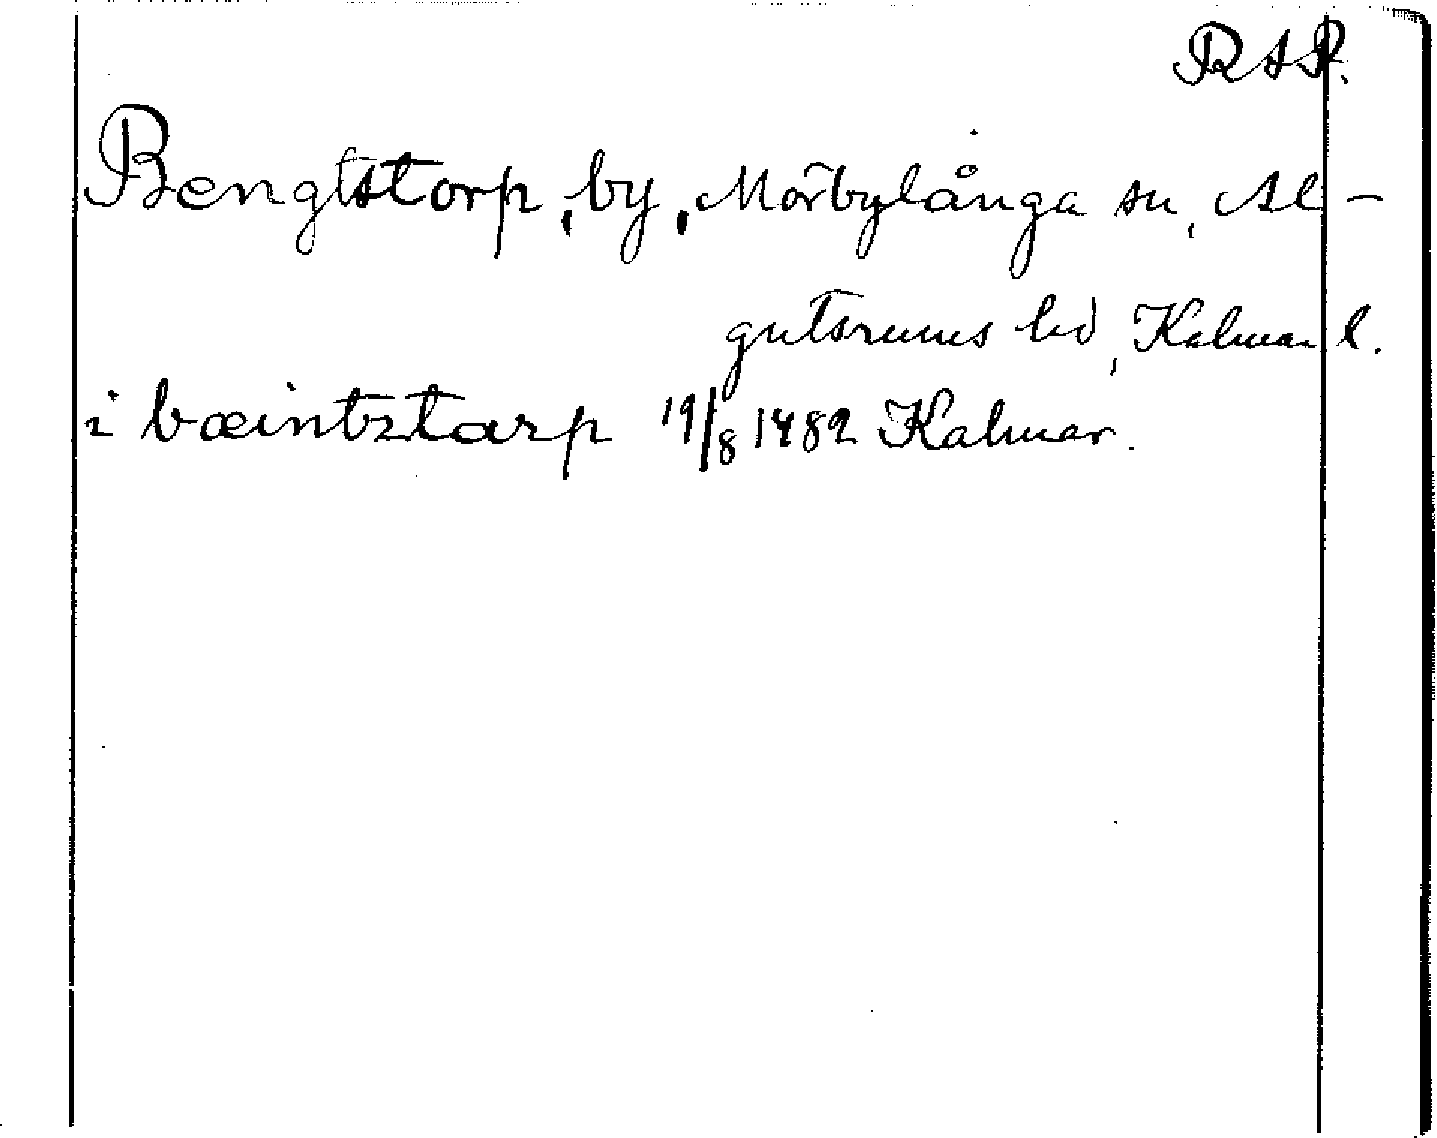 RAP.
Bengtstorp, by, Mörbylånga sn, Al-
gutsrums hd, Kalmar l.
i bæintztarp 19/8 1482 Kalmar.